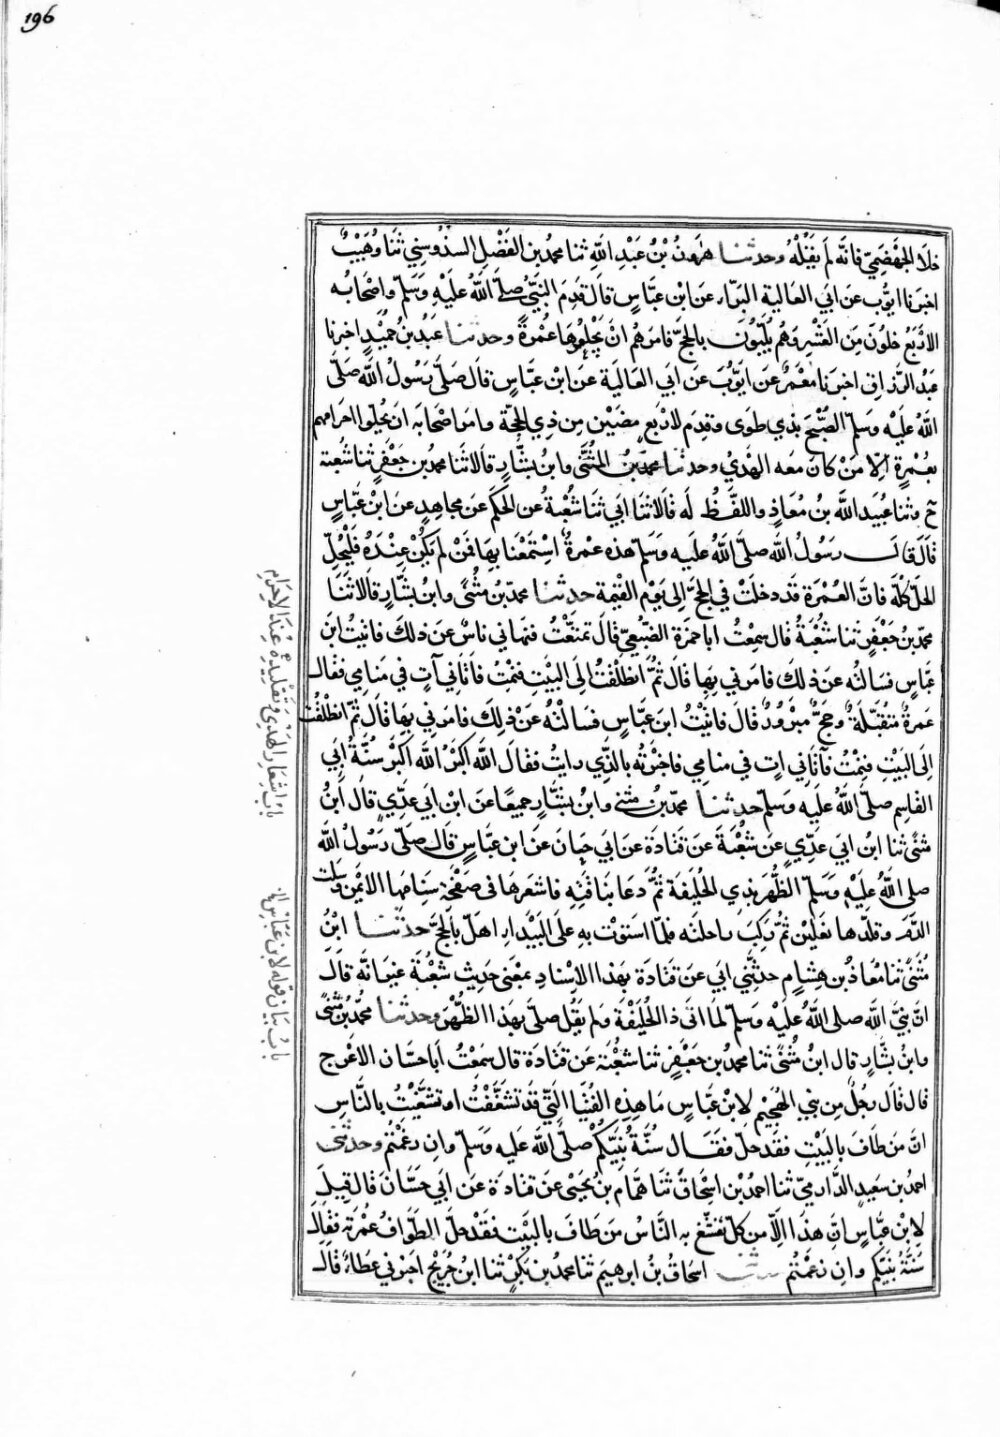 196
خلا الجهضمي فانه لم يقله وحدثنا هرون بن عبد الله ثنا محمد بن الفضل السدوسي ثنا وهيب
اخبرنا ايوب عن ابي العالية البراء عن ابن عباس قال قدم النبي صلى الله عليه وسلم واصحابه
لاربع خلون من العشر وهم يلبون بالحج فامرهم ان يجلوها عمرة وحدثنا عبد بن حميد اخبرنا
عبد الرزاق اخبرنا معمر عن ايوب عن ابي العالية عن ابن عباس قال صلى رسول الله صلى
الله عليه وسلم الصبح بذي طوى وقدم لاربع مضين من ذي الحجة وامر اصحابه ان يحلوا احرامهم
بعمرة الا من كان معه الهدي وحدثنا محمد بن المثنى وابن بشار قالا ثنا محمد بن جعفر ثنا شعبة
ح وثنا عبيد الله بن معاذ واللفظ له قالا ثنا ابي ثنا شعبة عن الحكم عن مجاهد عن ابن عباس
قال قال رسول الله صلى الله عليه وسلم هذه عمرة استمتعنا بها فمن لم يكن عنده فليحل
الحل كله فان العمرة قد دخلت في الحج الى يوم القيمة حدثنا محمد بن مثنى وابن بشار قالا ثنا
محمد بن جعفر ثنا شعبة قال سمعت ابا حمزة الضبعي قال تمتعت فنهاني ناس عن ذلك فاتيت ابن
عباس فسالته عن ذلك فامرني بها قال ثم انطلقت الى البيت فنمت فاتاني آت في منامي فقال
عمرة متقبلة وحج مبرور قال فاتيت ابن عباس فسالته عن ذلك فامرني بها قال ثم انطلقت
الى البيت فنمت فآتاني ات في منامي فاخبرته بالذي رايت فقال الله اكبر الله اكبر سنة ابي
القاسم صلى الله عليه وسلم حدثنا محمد بن مثنى وابن بشار جميعا عن ابن ابي عدي قال ابن
مثنى ثنا ابن ابي عدي عن شعبة عن قتادة عن ابي حسان عن ابن عباس قال صلى رسول الله
صلى الله عليه وسلم الظهر بذي الحليفة ثم دعا بناقته فاشعرها في صفحة سنامها الايمن وسلت
الدم وقلدها نعلين ثم ركب راحلته فلما استوت به على البيداء اهل بالحج حدثنا ابن
مثنى ثنا معاذ بن هشام حدثني ابي عن قتادة بهذا الاسناد بمعنى حديث شعبة غير انه قال
ان نبي الله صلى الله عليه وسلم لما اتى ذا الحليفة ولم يقل صلى بهذا الظهر وحدثنا محمد بن مثنى
وابن بشار قال ابن مثنى ثنا محمد بن جعفر ثنا شعبة عن قتادة قال سمعت ابا حسان الاعرج
قال قال رجل من بني الهجيم لابن عباس ما هذه الفتيا التي قد تشغفت او تشغبت بالناس
ان من طاف بالبيت فقد حل فقال سنة نبيكم صلى الله عليه وسلم وان رغمتم وحدثني
احمد بن سعيد الدارمي ثنا احمد بن اسحاق ثنا همام بن يحيى عن قتادة عن ابي حسان قال قيل
لابن عباس ان هذا الامر كل تفشغ به الناس من طاف بالبيت فقد حل الطواف عمرة فقال
سنة نبيكم وان رغمتم اسحاق بن ابرهيم ثنا محمد بن بكر ثنا ابن جريج اخبرني عطاء قال
باب اشعار الهدي وتقليده عند الاحرام
باب بيان قوله لابن عباس